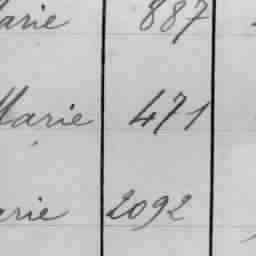 arie 887
Marie 471
arie 2092